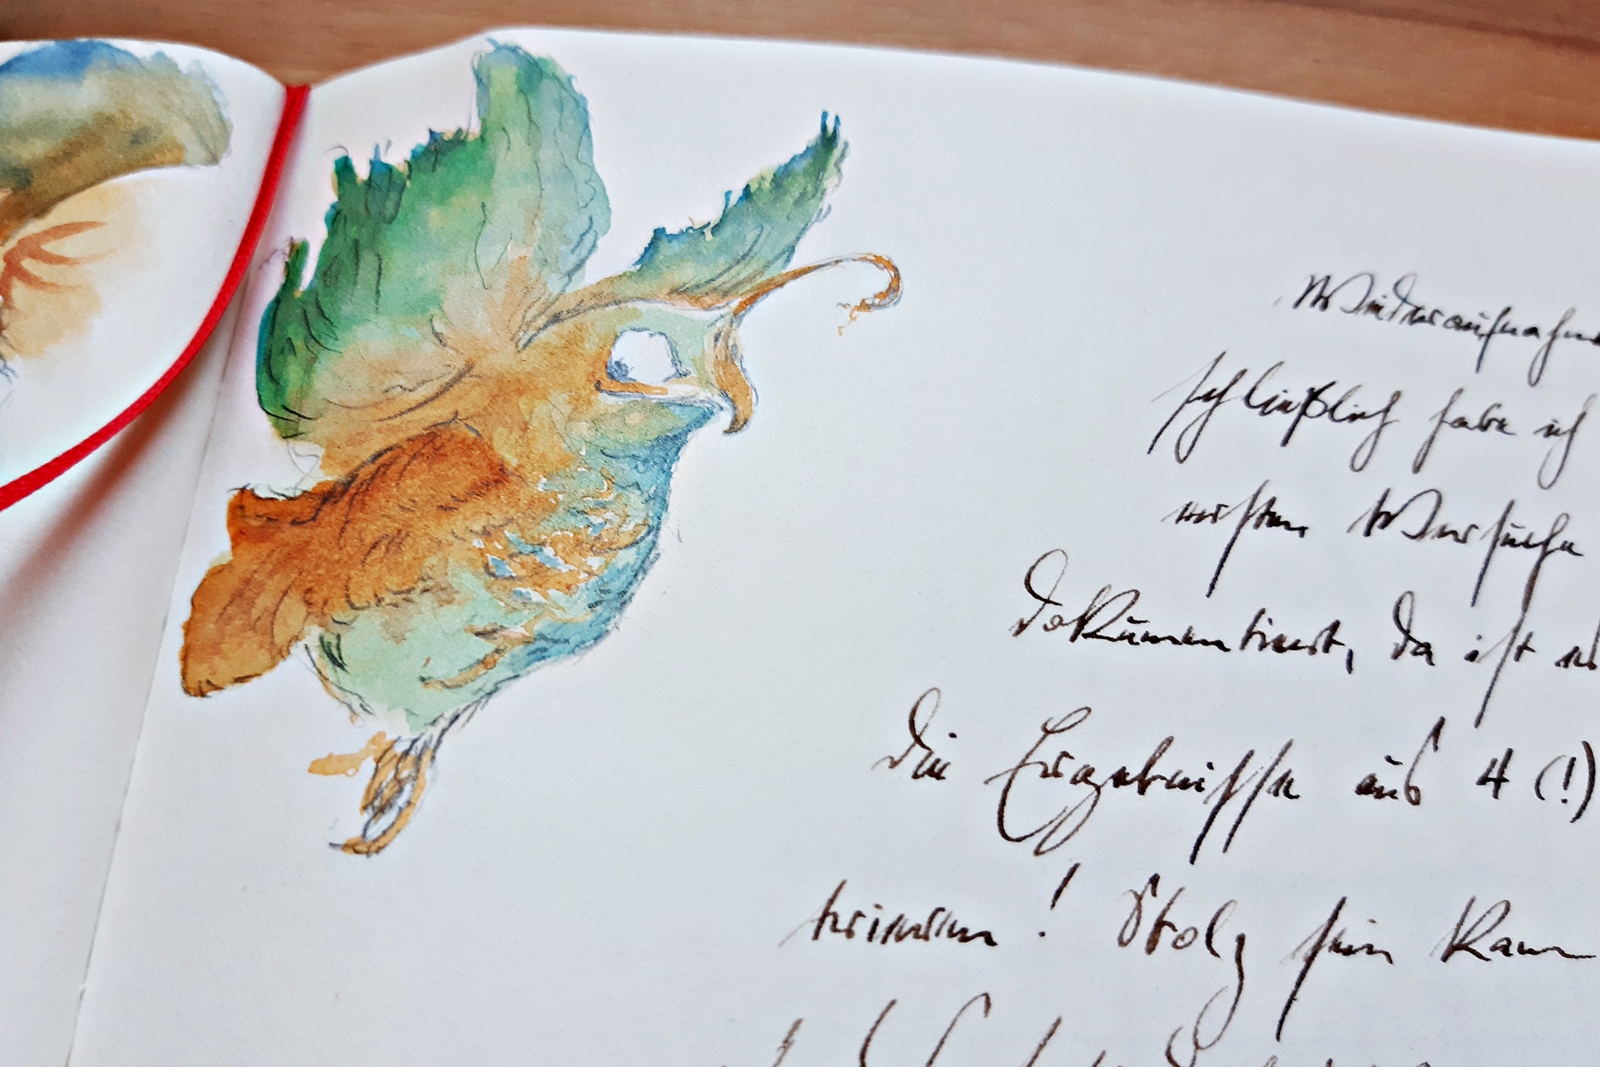 Wiederaufnahm
schließlich habe ich
ersten Versuche
dokumentiert, da ist
die Ergebnisse aus 4 (!)
! Stolz sein kann